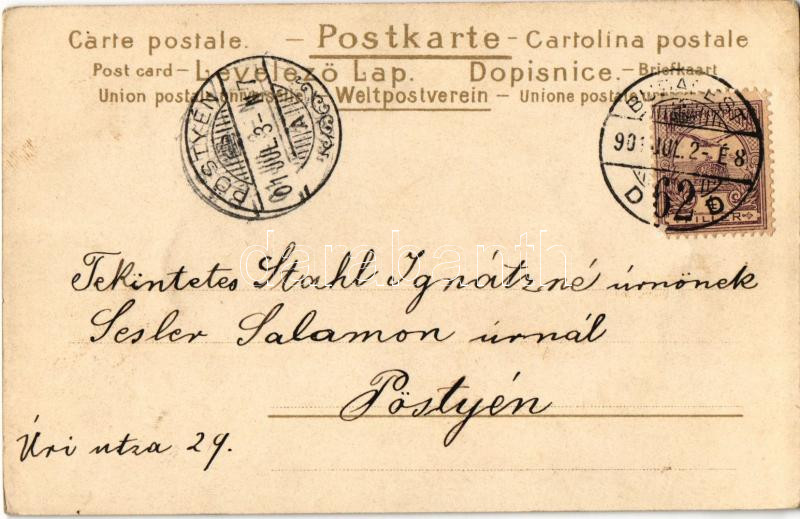 Càrte postale. — Postkarte - Cartolina postale
Post card — Levelező Lap. Dopisnice. — Briefkaart
Union postale universelle Weltpostverein — Unione postale
PÖSTYÉN
901 JUL. 3 - N
BUDAPEST
901 JUL. 2 - É 8
62 D
FILLÉR
Tekintetes Stahl Ignátzné úrnönek
Sesler Salamon úrnál
Pöstyén
Úri utza 29.
darabanth